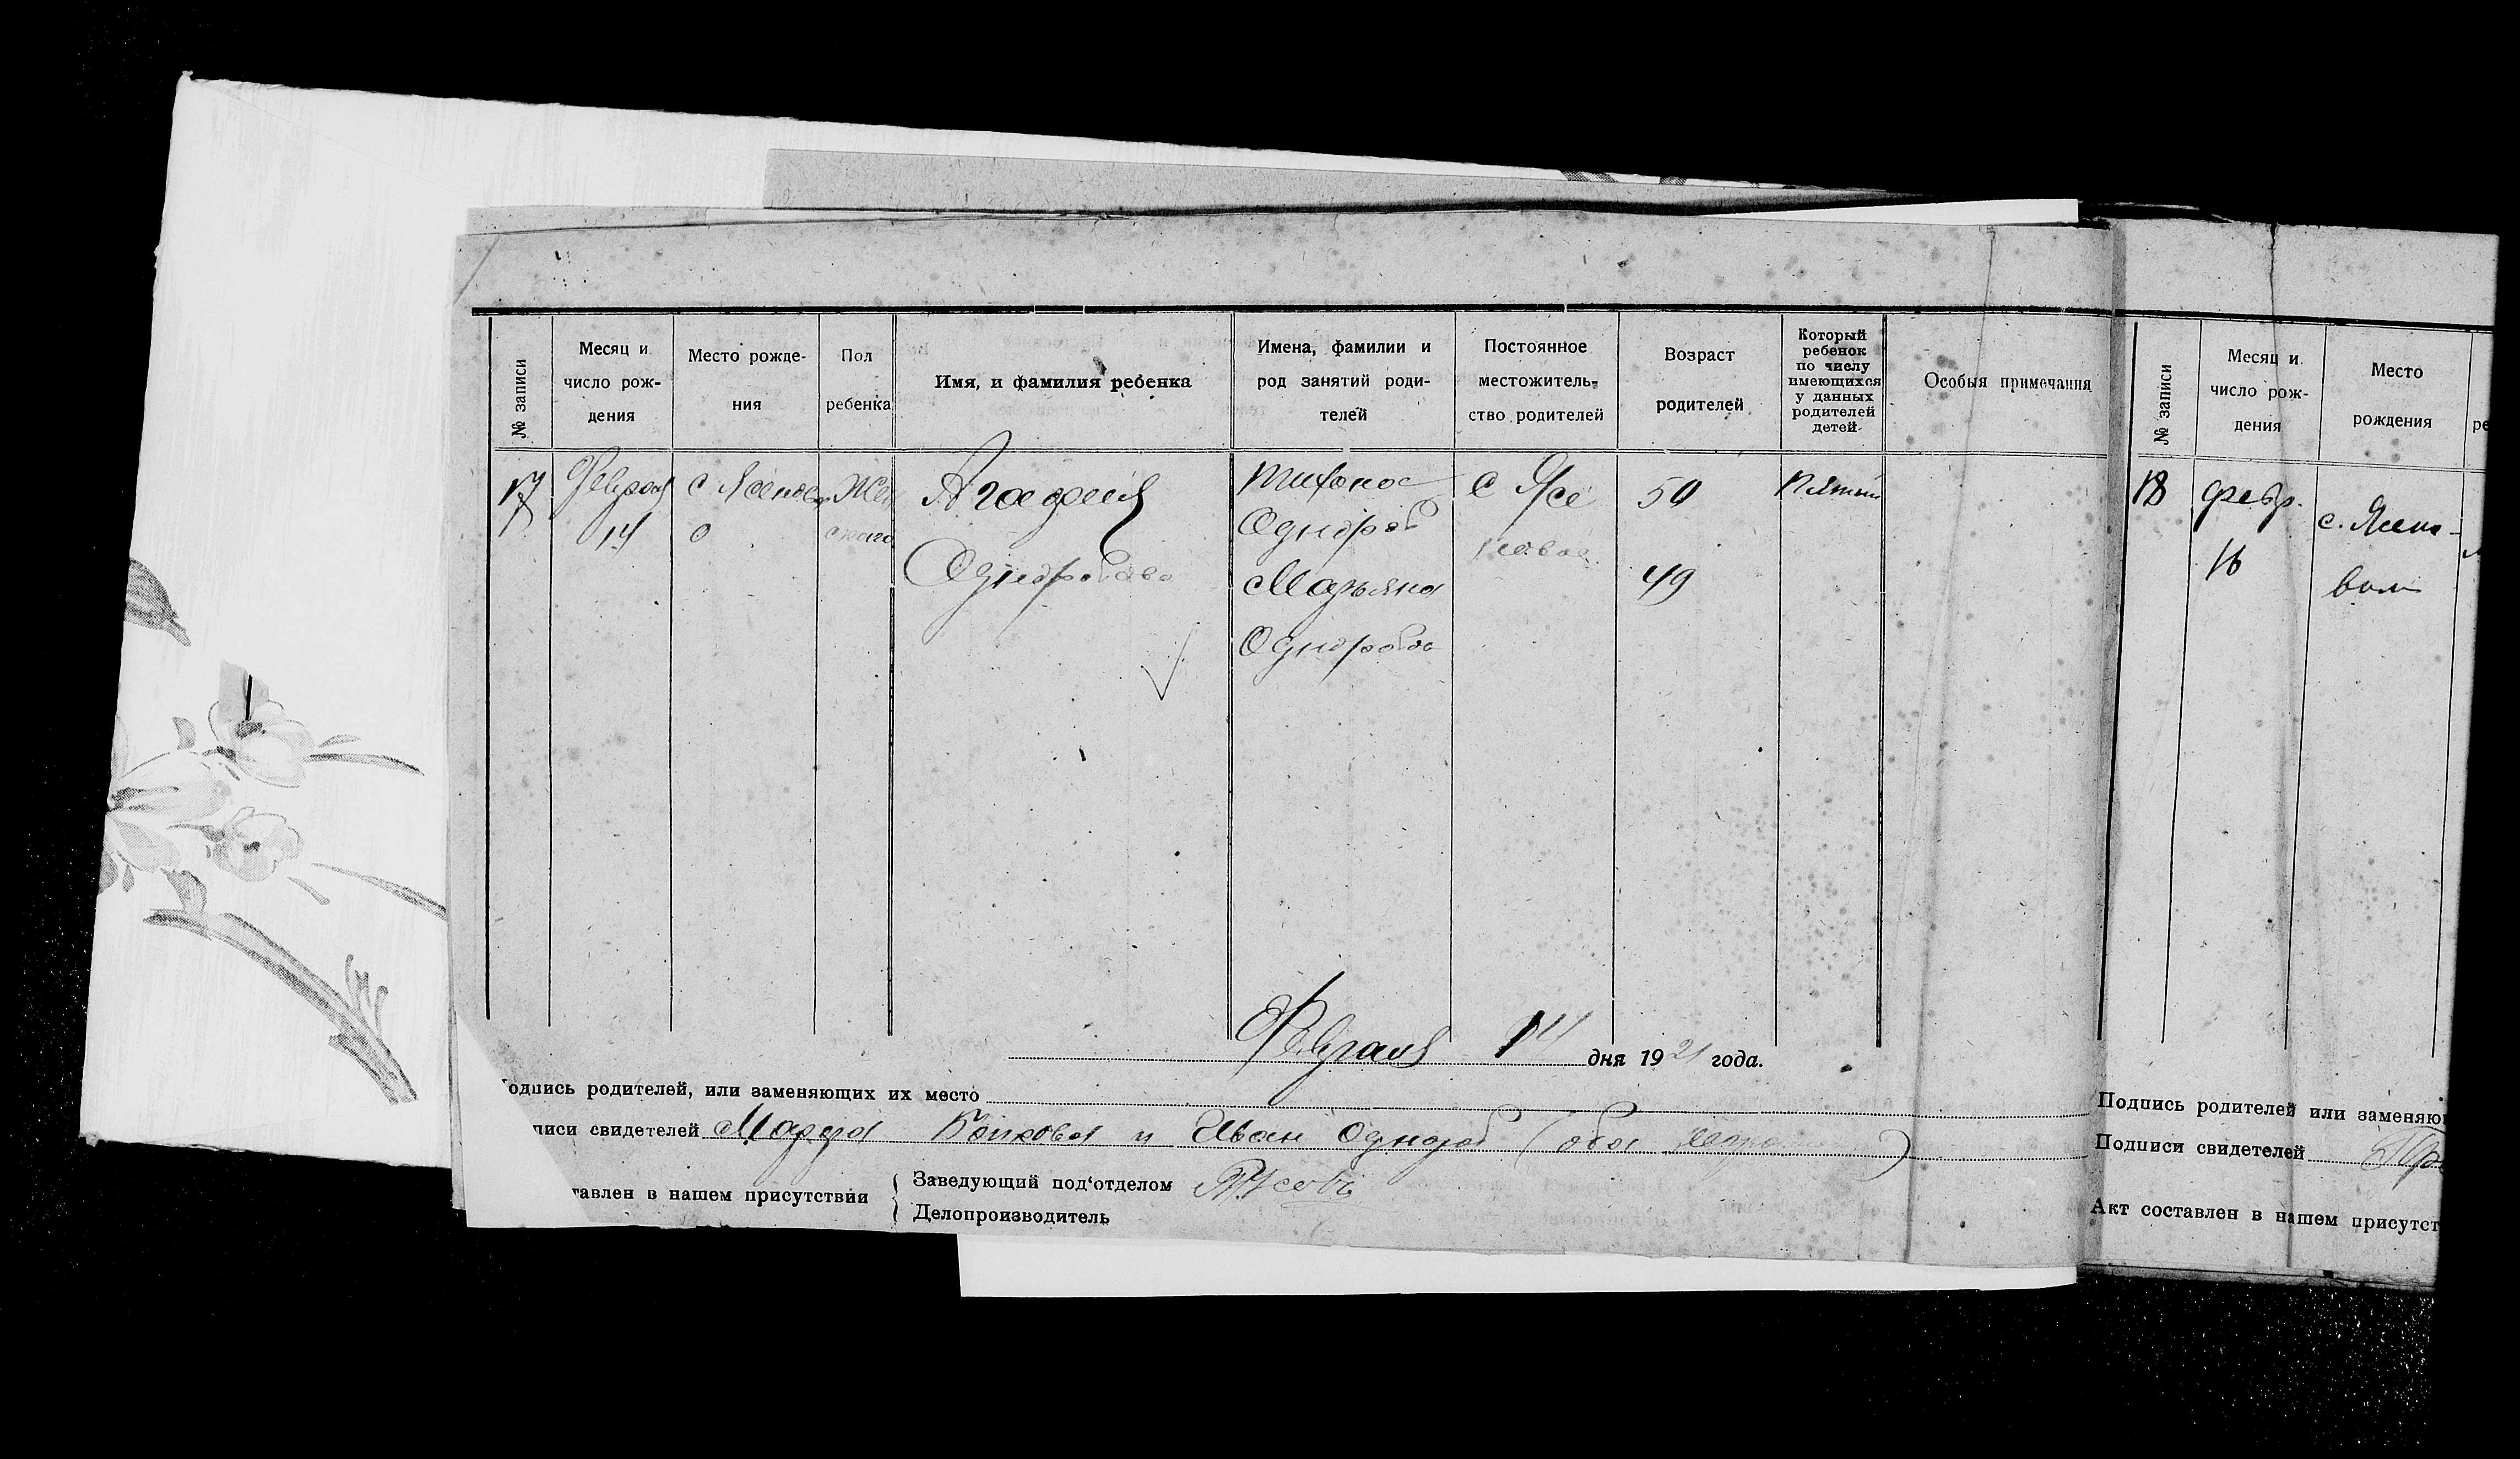 № записи
Месяц и
число рож-
дения
Место рожде-
ния
Пол
ребенка
Имя, и фамилия ребенка
Имена, фамилии и
род занятий роди-
телей
Постоянное
местожитель-
ство родителей
Возраст
родителей
Который
ребенок
по числу
имеющихся
у данных
родителей
детей
Особыя примечания
17
Февраля
14
с Ясеново
о
Жен
скаго
Агафия
Однороб
Марьяна
с Ясе
новое
50
49
Пятый
Февраля 14 дня 1921 года.
одпись родителей, или заменяющих их место
писи свидетелей Марфа и Иван Однороб (оба
тавлен в нашем присутствии
Заведующий под'отделом
Делопроизводитель
№ записи
Месяц и
число рож-
дения
Место
рождения
ре
18
февр.
16
с. Ясено-
вом
Подпись родителей или заменяю
Подписи свидетелей
Акт составлен в нашем присутст